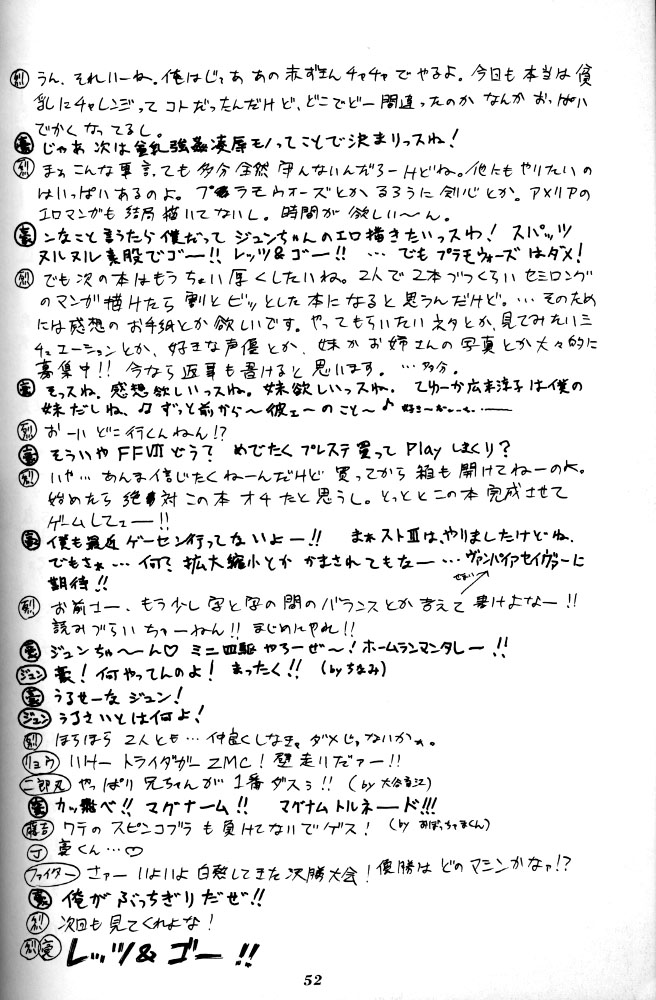 烈 うん、それいーね。俺はじゃああの赤ずきんチャチャでやるよ。今日も本当は貧
乳にチャレンジってコトだったんだけど、どこでどー間違ったのかなんかおっぱい
でかくなってるし。
烈 まぁこんな事言っても多分全然守んないんだろーけどね。他にもやりたいの
はいっぱいあるのよ。プラモウォーズとかるろうに剣心とか。アメリアの
エロマンガも結局描いてないし。時間が欲しい〜ん。
烈 でも次の本はもうちょい厚くしたいね。2人で2本づつくらいセミロング
のマンガ描けたら割とビッとした本になると思うんだけど。…そのため
には感想のお手紙とか欲しいです。やってもらいたいネタとか、見てみたいシ
チュエーションとか、好きな声優とか、妹かお姉さんの写真とか大々的に
募集中!! 今なら返事も書けると思います。…多分。
豪 そっスね。感想欲しいっスね。妹欲しいっスね。てゆーか広末涼子は僕の
妹だしね、♫ずっと前から〜彼ェ〜のこと〜♪
烈 おーいどこ行くんねん!?
豪 そういやFFⅦどう? めでたくプレステ買ってPlayしまくり?
烈 いや…あんま信じたくねーんだけど買ってから箱も開けてねーのな。
始めたら絶対この本オチたと思うし。とっととこの本完成させて
ゲームしてェー!!
豪 僕も最近ゲーセン行ってないよー!! まぁストⅢはやりましたけどね、
でもさぁ…何?拡大縮小とかかまされてもなー…ヴァンパイアセイヴァーに
期待!!
烈 お前さー、もう少し字と字の間のバランスとか考えて書けよなー!!
読みづらいちゅーねん!! まじめにやれ!!
豪 ジュンちゃ〜〜ん♡ ミニ四駆やろーぜ〜!ホームランマンタレー!!
ジュン 豪!何やってんのよ! まったく!!(byちなみ)
豪 うるせーなジュン!
ジュン うるさいとは何よ!
烈 ほらほら2人とも…仲良くしなきゃダメじゃないかぁ。
リョウ いけートライダガーZMC!壁走りだァー!!
二郎丸 やっぱり兄ちゃんが1番ダスぅ!!(by大谷育江)
豪 カッ飛べ!!マグナーム!! マグナムトルネード!!!
藤吉 ワテのスピンコブラも負けてないでゲス!(byおぼっちゃまくん)
J 豪くん…♡
ファイター さァーいよいよ白熱してきた決勝大会!優勝はどのマシンかなァ!?
豪 俺がぶっちぎりだぜ!!
烈 次回も見てくれよな!
烈 豪 レッツ&ゴー!!
52